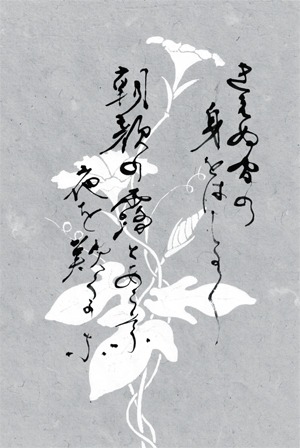 きえぬ間の
身をもしる／＼
朝顔の露とあらそふ
世を嘆くかな